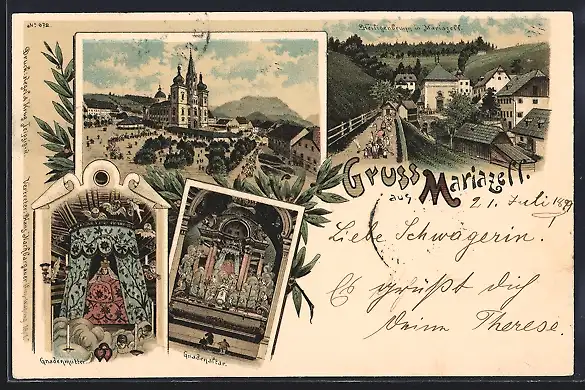 No. 872.
Heiligenbrunn in Mariazell.
Gruss
aus Mariazell.
21. Juli 1899
Liebe Schwägerin.
Es grüßt dich
deine Therese.
Gnadenmutter
Gnadenaltar.